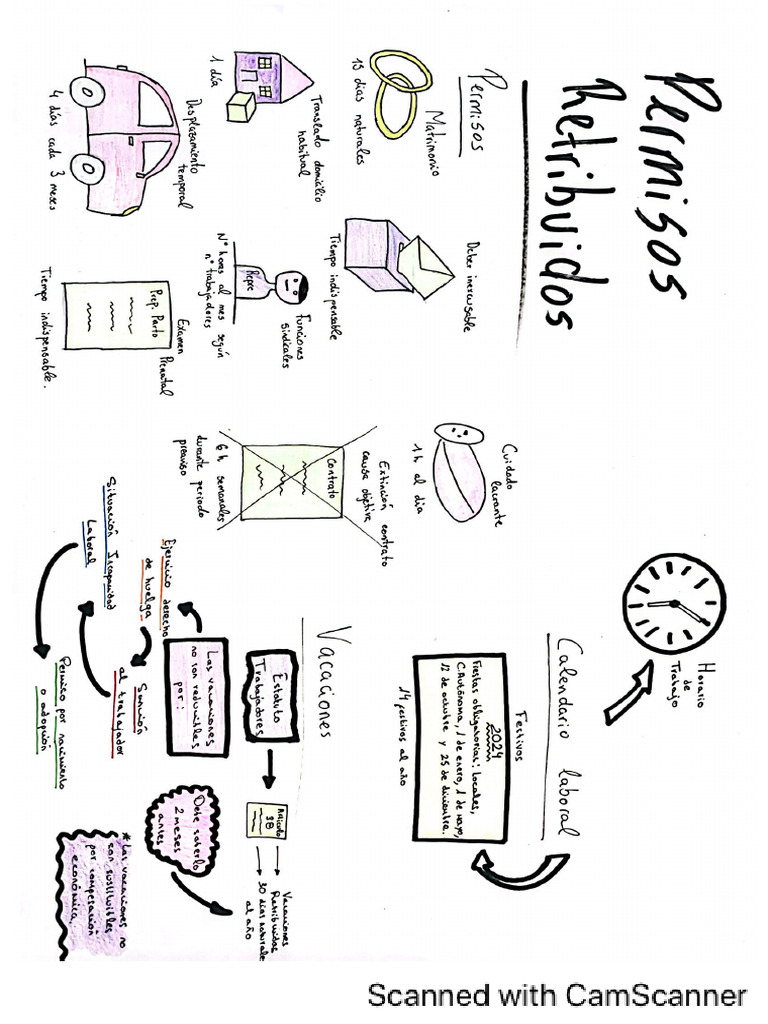 Permisos
Retribuidos
Permisos
Matrimonio
15 días naturales
Deber inexcusable
Tiempo indispensable
Cuidado
lactante
1 h al día
Translado domicilio
habitual
1 día
Funciones
sindicales
Repre
Nº horas al mes según
nº trabajadores
Extinción contrato
causa objetiva
Contrato
6 h semanales
durante periodo
preaviso
Desplazamiento
temporal
4 días cada 3 meses
Examen
Prenatal
Prep. Parto
Tiempo indispensable.
Horario
de
Trabajo
Calendario laboral
Festivos
2024
Fiestas obligatorias: locales,
C.Autónoma, 1 de enero, 1 de mayo,
12 de octubre y 25 de diciembre.
14 festivos al año
Vacaciones
Estatuto
Trabajadores
Artículo
38
Vacaciones
Retribuidas
30 días naturales
al año
Las vacaciones
no son reducibles
por:
Ejercicio derecho
de huelga
Sanción
al trabajador
Situación Incapacidad
Laboral
Permiso por nacimiento
o adopción
Debe saberlo
2 meses
antes
*Las vacaciones no
son sustituibles
por compensación
económica.
Scanned with CamScanner